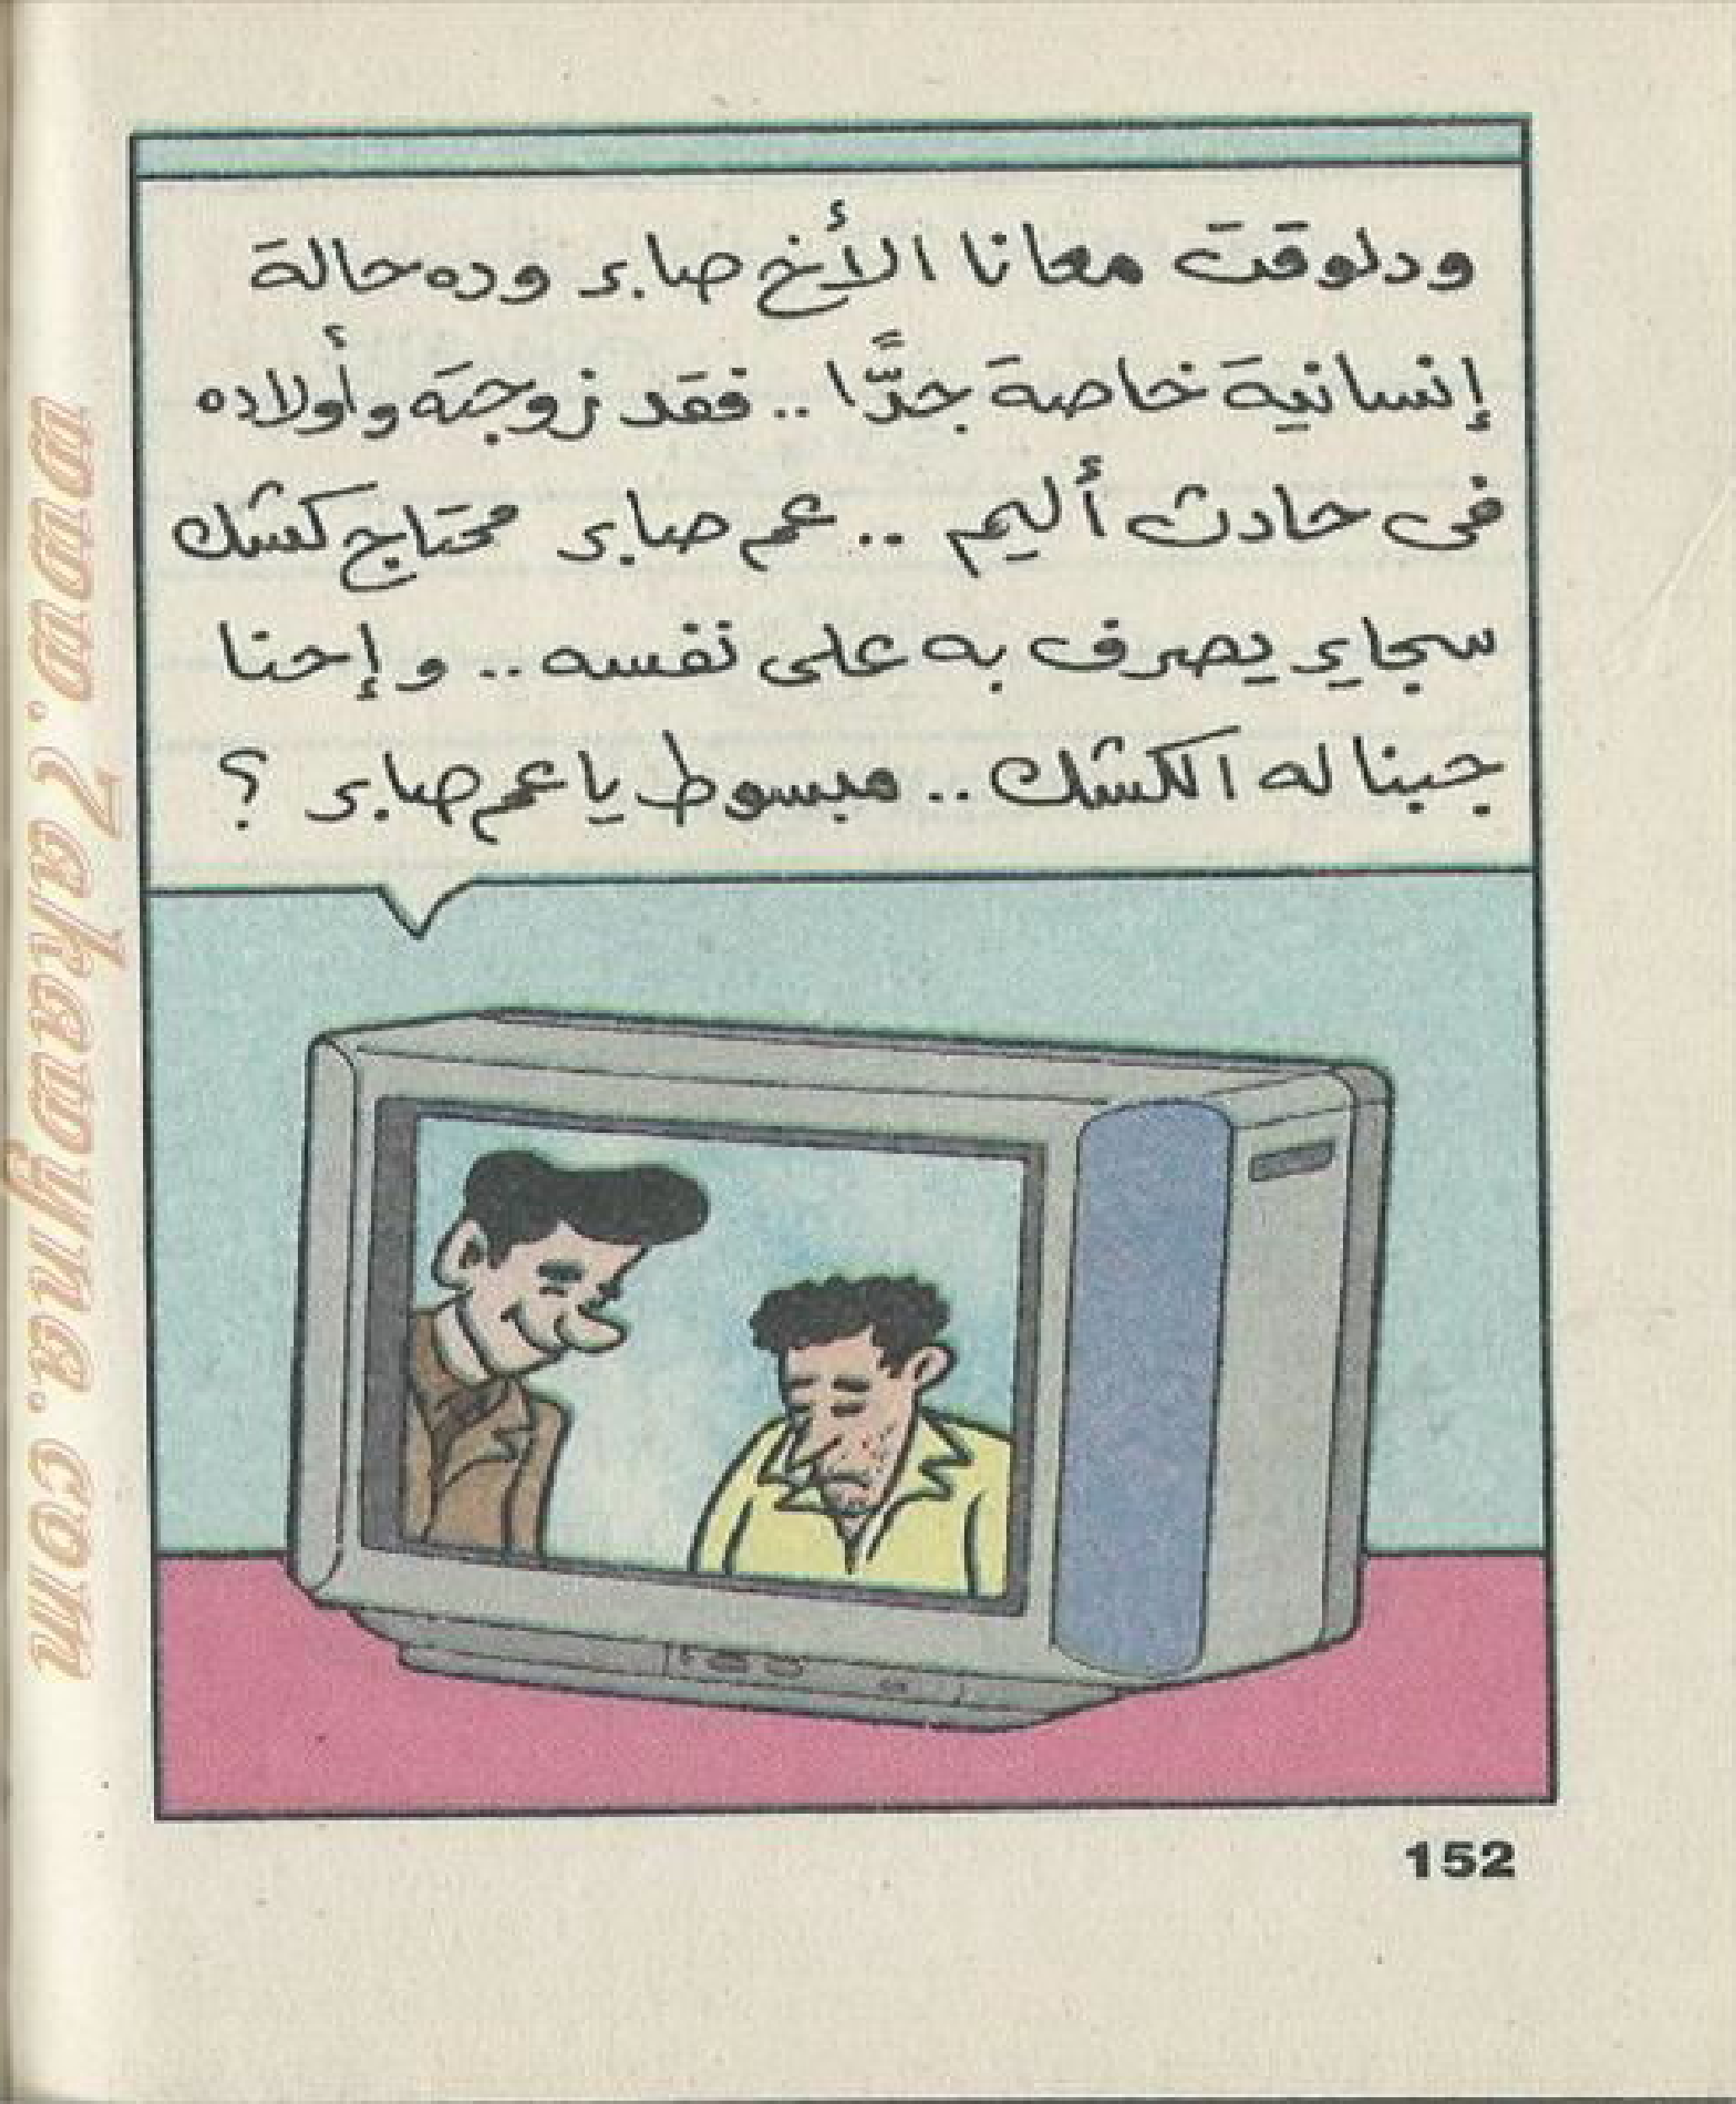 ودلوقت معانا الأخ صابر وده حالة
إنسانية خاصة جدًّا .. فقد زوجته وأولاده
فى حادث أليم .. عم صابر محتاج كشك
سجاير يصرف به على نفسه .. وإحنا
جبنا له الكشك .. مبسوط يا عم صابر ؟
152